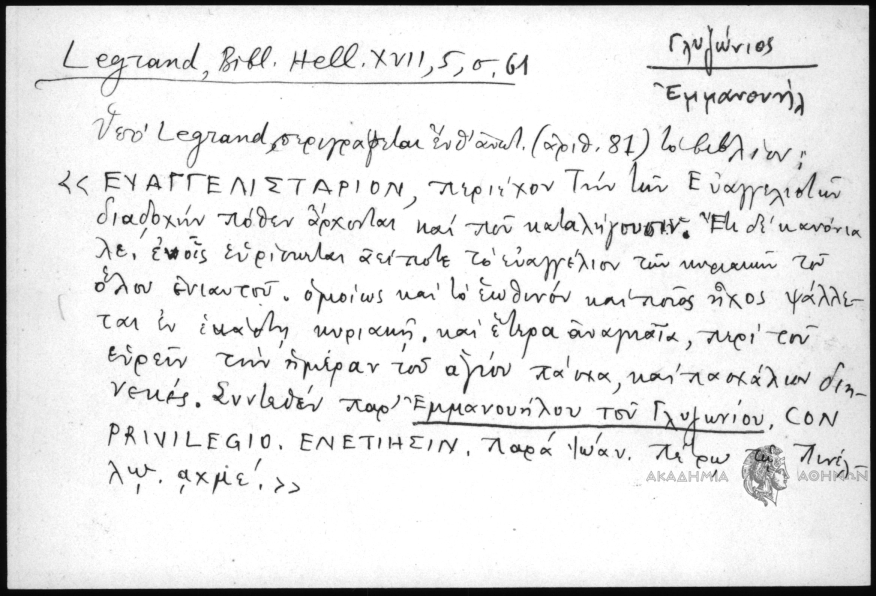 Legrand, Bibl. Hell. XVII, 5, σ. 61
Γλυζώνιος
Ἐμμανουήλ
Ὑπό Legrand, περιγράφεται ἐνθ' ἀνωτ. (ἀριθ. 81) το βιβλίον:
<< ΕΥΑΓΓΕΛΙΣΤΑΡΙΟΝ, περιέχον Τήν τῶν Εὐαγγελιστῶν
διαδοχήν πόθεν ἄρχονται καί ποῦ καταλήγουσιν. Ἔτι δέ κανόνια
λε. ἐν οἷς εὑρίσκεται ἀείποτε τό εὐαγγέλιον τῶν κυριακῶν τοῦ
ὅλου ἐνιαυτοῦ. ὁμοίως καί τό ἑωθινόν καί ποῖος ἦχος ψάλλε-
ται ἐν ἑκάστῃ κυριακῇ. καί ἕτερα ἀναγκαῖα, περί τοῦ
εὑρεῖν τήν ἡμέραν τοῦ ἁγίου πάσχα, καί πασχάλιον διη-
νεκές. Συντεθέν παρ' Ἐμμανουήλου τοῦ Γλυζωνίου. CON
PRIVILEGIO. ΕΝΕΤΙΗΣΙΝ. παρά Ἰωάν. Πέτρῳ τῷ Πινέλ-
λῳ. αχμε'. >>
ΑΚΑΔΗΜΙΑ ΑΘΗΝΩΝ